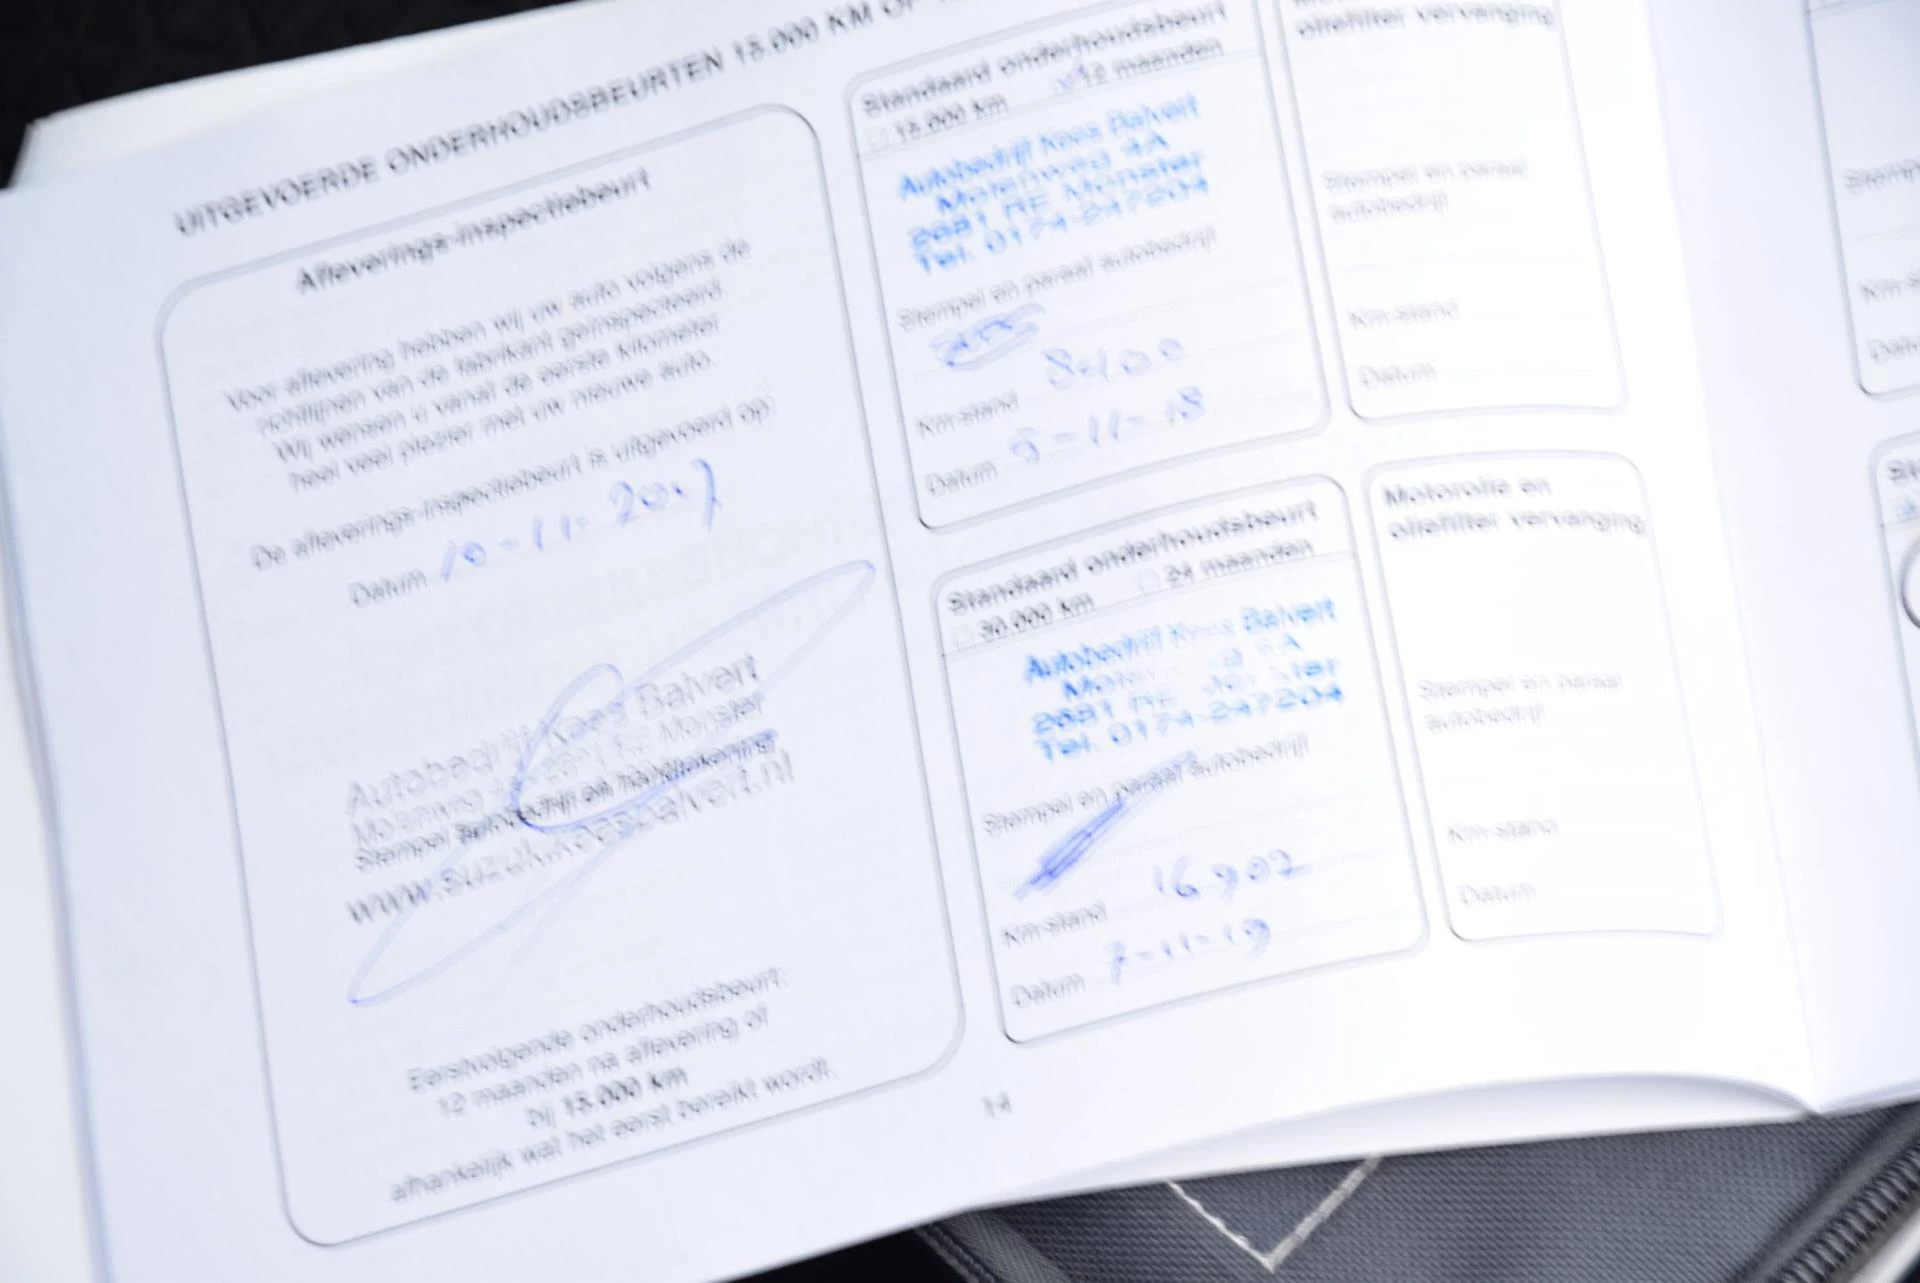 UITGEVOERDE ONDERHOUDSBEURTEN 15.000 KM OF
Afleverings-inspectiebeurt
Voor aflevering hebben wij uw auto volgens de
richtlijnen van de fabrikant geïnspecteerd.
Wij wensen u vanaf de eerste kilometer
heel veel plezier met uw nieuwe auto.
De afleverings-inspectiebeurt is uitgevoerd op:
Datum 10-11-2017
Autobedrijf Kees Balvert
Molenweg Monster
Stempel autobedrijf en handtekening
www.suzuki.keesbalvert.nl
Eerstvolgende onderhoudsbeurt:
12 maanden na aflevering of
bij 15.000 km
afhankelijk wat het eerst bereikt wordt.
Standaard onderhoudsbeurt
15.000 km 12 maanden
Autobedrijf Kees Balvert
Molenweg 4A
2681 RE Monster
Tel. 0174-247204
Stempel en paraaf autobedrijf
Km-stand 8.100
Datum 5-11-18
Standaard onderhoudsbeurt
30.000 km 24 maanden
Autobedrijf Kees Balvert
2681 RE Monster
Tel. 0174-247204
Stempel en paraaf autobedrijf
Km-stand 16907
Datum 7-11-19
oliefilter vervanging
Stempel en paraaf
autobedrijf
Km-stand
Datum
Motorolie en
oliefilter vervanging
Stempel en paraaf
autobedrijf
Km-stand
Datum
14